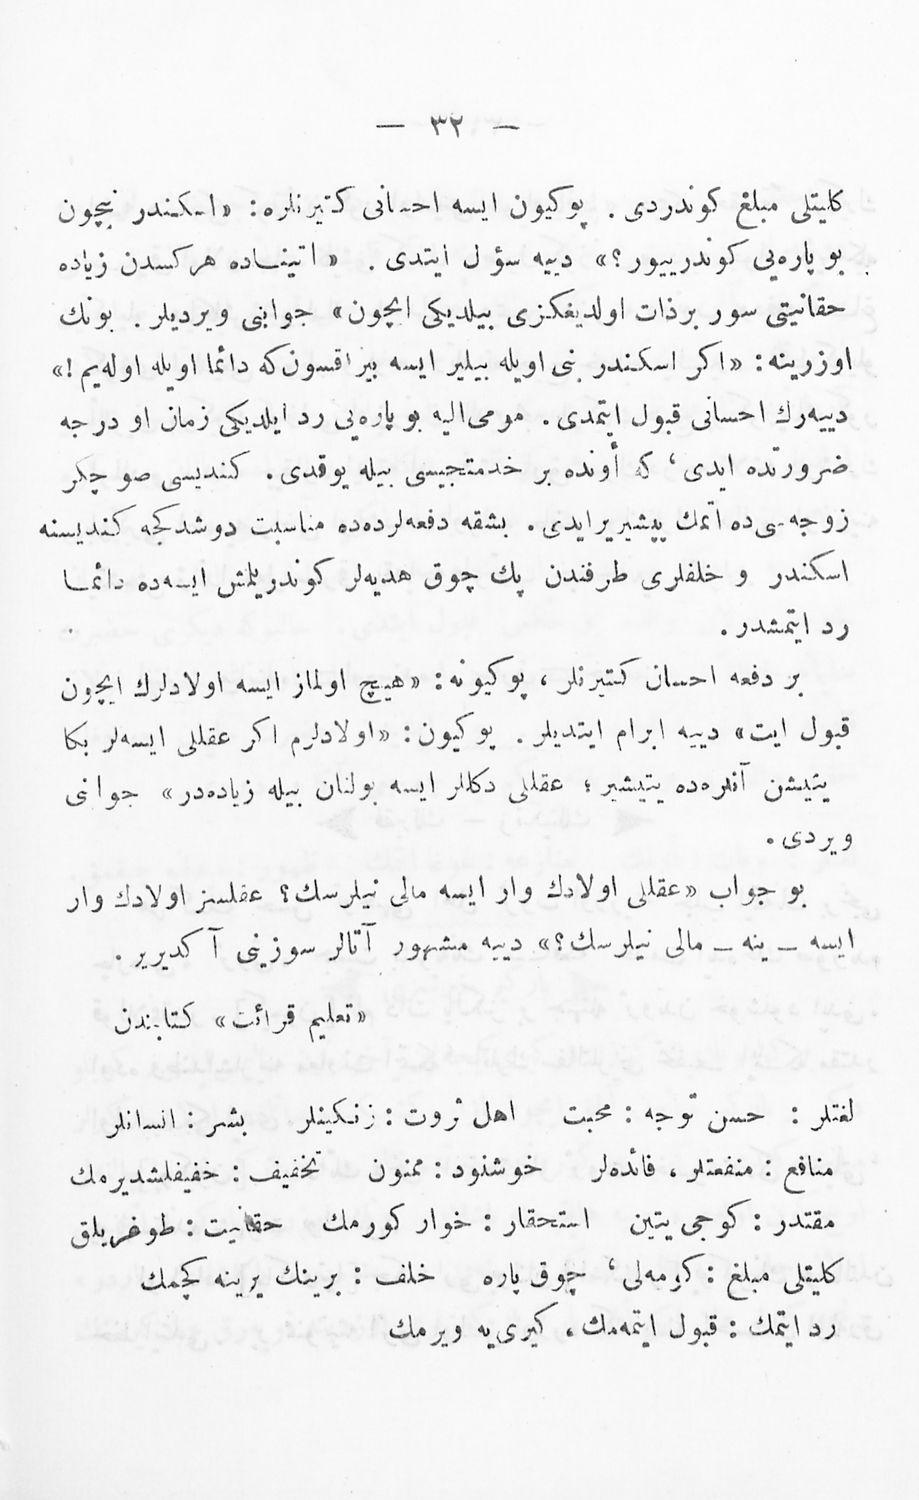 — ٣٢ —
كليتلى مبلغ كوندردى . پوكيون ايسه احسانى كتيرنلره : « اسكندر نيچون
بو پاره‌يى كوندرييور ؟ » دييه سؤل ايتدى . « اتينـاده هركسدن زياده
حقانيتى سور برذات اولديغكزى بيلديكى ايچون » جوابنى ويرديلر . بونك
اوزرينه : « اكر اسكندر بنى اويله بيلير ايسه بيراقسون‌كه دائما اويله اوله‌يم ! »
دييه‌رك احسانى قبول ايتمدى . مومى‌اليه بو پاره‌يى رد ايلديكى زمان او درجه
ضرورتده ايدى ، كه أونده بر خدمتجيسى بيله يوقدى . كنديسى صو چكر
زوجه‌سى‌ده اتمك پيشيريرايدى . بشقه دفعه‌لرده‌ده مناسبت دوشدكجه كنديسنه
اسكندر و خلفلرى طرفندن پك چوق هديه‌لر كوندريلمش ايسه‌ده دائمـا
رد ايتمشدر .
بر دفعه احسان كتيرنلر ، پوكيونه : « هيچ اولماز ايسه اولادلرك ايچون
قبول ايت » دييه ابرام ايتديلر . پوكيون : « اولادلرم اكر عقللى ايسه‌لر بكا
يتيشن آنلره‌ده يتيشير ؛ عقللى دكللر ايسه بولنان بيله زياده‌در » جوابنى
ويردى .
بو جواب « عقللى اولادك وار ايسه مالى نيلرسك ؟ عقلسز اولادك وار
ايسه ــ ينه ــ مالى نيلرسك ؟ » دييه مشهور آتالر سوزينى آ كديرير .
« تعليم قرائت » كتابندن
لغتلر : حسن توجه : محبت   اهل ثروت : زنكينلر   بشر : انسانلر
منافع : منفعتلر ، فائده‌لر   خوشنود : ممنون   تخفيف : خفيفلشديرمك
مقتدر : كوجى يتين   استحقار : خوار كورمك   حقانيت : طوغريلق
كليتلى مبلغ : كومه‌لى ، چوق پاره   خلف : برينك يرينه كچمك
رد ايتمك : قبول ايتمه‌مك ، كيرى‌يه ويرمك